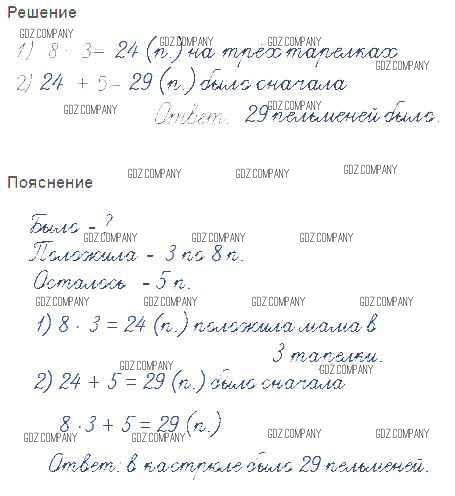 Решение
GDZ.COMPANY
1) 8 · 3 = 24 (п.) на трёх тарелках
GDZ.COMPANY GDZ.COMPANY
GDZ.COMPANY
2) 24 + 5 = 29 (п.) было сначала
GDZ.COMPANY GDZ.COMPANY
Ответ: 29 пельменей было.
GDZ.COMPANY GDZ.COMPANY GDZ.COMPANY
Пояснение
Было - ?
GDZ.COMPANY GDZ.COMPANY GDZ.COMPANY
Положила - 3 по 8 п.
Осталось - 5 п.
GDZ.COMPANY GDZ.COMPANY GDZ.COMPANY GDZ.COMPANY
1) 8 · 3 = 24 (п.) положила мама в
3 тапелки.
GDZ.COMPANY GDZ.COMPANY
2) 24 + 5 = 29 (п.) было сначала
8 · 3 + 5 = 29 (п.)
GDZ.COMPANY GDZ.COMPANY GDZ.COMPANY GDZ.COMPANY
Ответ: в кастрюле было 29 пельменей.